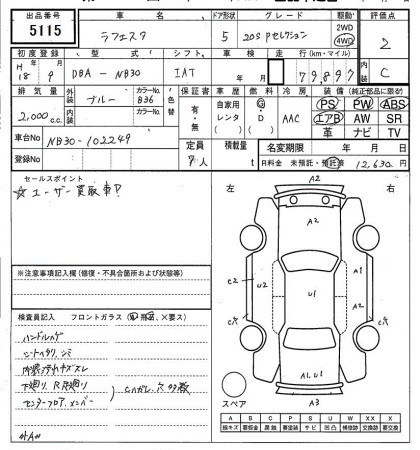 出品番号 車名 ドア形状 グレード 駆動 評価点
5115 ラフェスタ 5 20S Pセレクション 2WD 4WD 2
初度登録 型式 シフト 車検 走行(km・マイル) 内装
H18年9月 DBA-NB30 IAT 年 月 79,897 C
排気量 外装 カラーNo. 色替 保証書 車歴 燃料 冷房 装備(純正部品に限る)
2,000c.c. ブルー B36 有・無 自家用 レンタ ( ) G・D ( ) AAC PS PW ABS
内装 カラーNo. エアB AW SR
革 ナビ TV
車台No NB30-102249 定員 積載量 名変期限 年 月 日
登録No 7人 t R料金 未預託・預託済 12,630円
セールスポイント
☆ユーザー買取車!!
左 右
A2
A2
C2 U2 U1 A1
A2
C穴 C穴
A1.U1
A3
スペア
※注意事項記入欄(修復・不具合箇所および状態等)
検査員記入 フロントガラス(飛石、×要ス)
ハンドルハゲ
シートヘタリ、シミ
内装汚れキズスレ
下廻り、R足廻り
センターフロア、メンバー
サビハガレ、穴多数
A B C P S U W XX X
線キズ 要板金 腐蝕 要塗装 サビ 凹凸 補修跡 交換跡 要交換